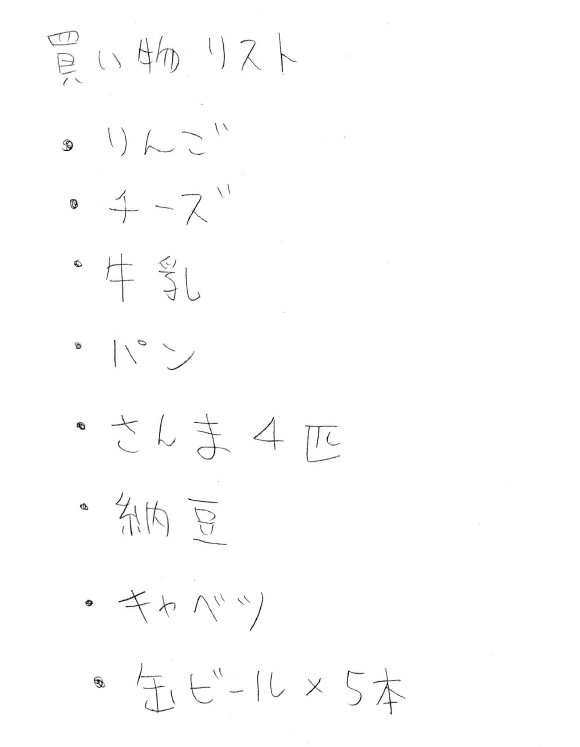 買い物リスト
・りんご
・チーズ
・牛乳
・パン
・さんま4匹
・納豆
・キャベツ
・缶ビール×5本